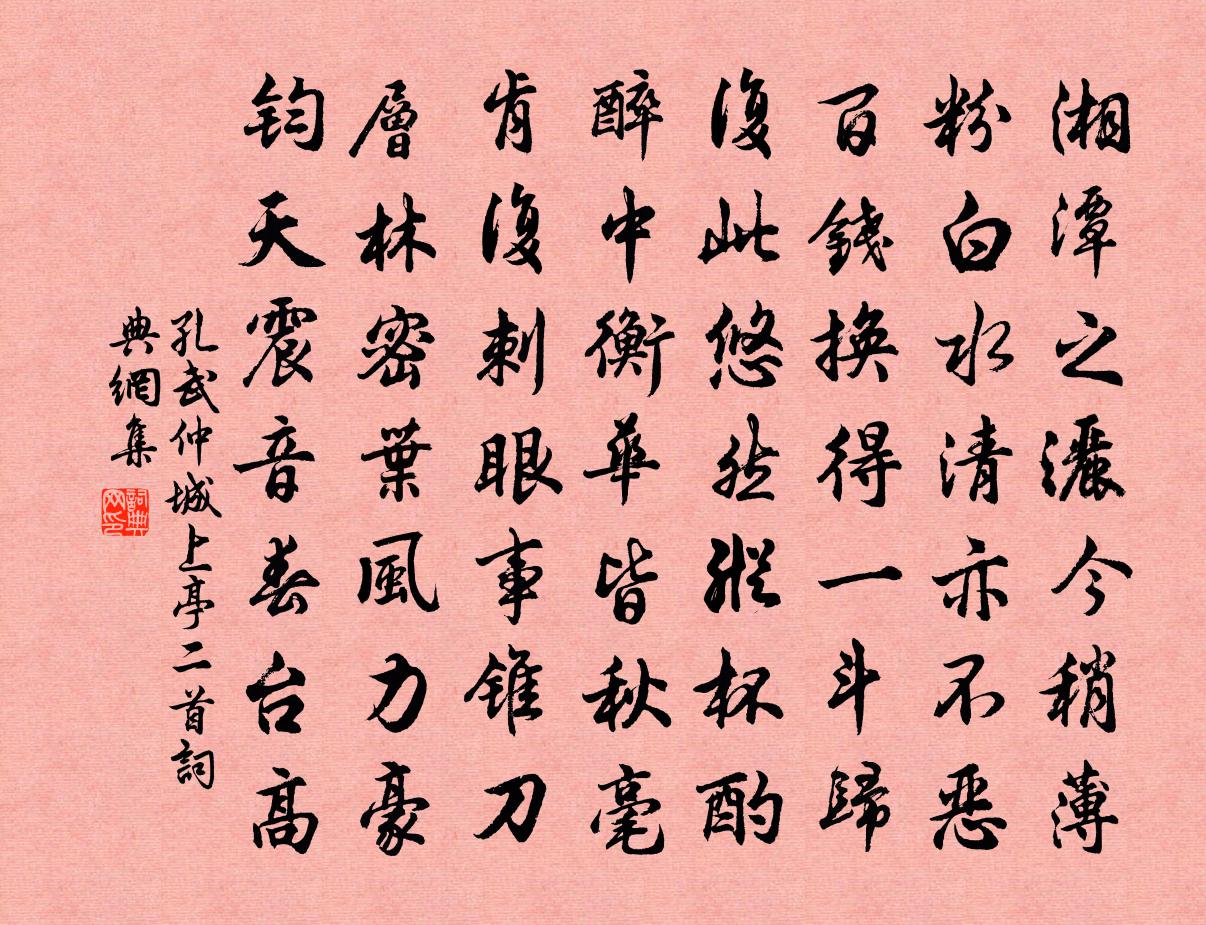 湘潭之灑今稍薄
粉白水清亦不惡
百錢換得一斗歸
復此悠然縱杯酌
醉中衡華皆秋毫
肯復刺眼事錐刀
層林密葉風力豪
鈞天震音春台高
孔武仲城上亭二首詞
典網集
詞典
网印